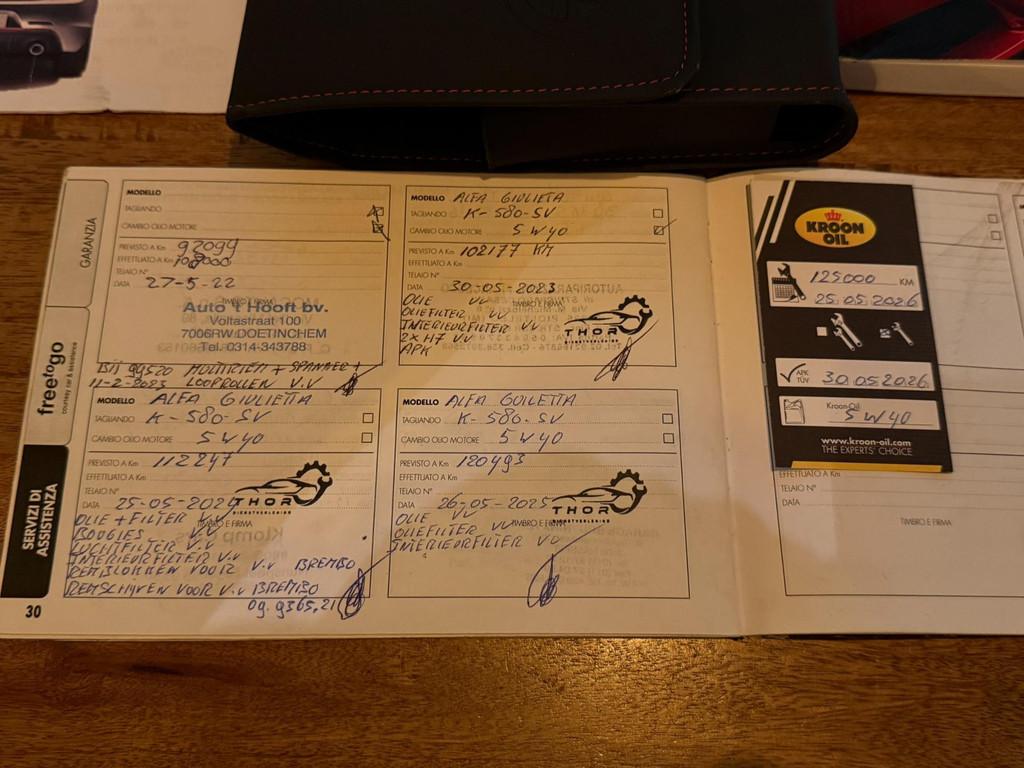 GARANZIA
freetogo
courtesy car & assistance
SERVIZI DI
ASSISTENZA
30
MODELLO
TAGLIANDO
CAMBIO OLIO MOTORE
PREVISTO A Km 92099
EFFETTUATO A Km
TELAIO N°
DATA 27-5-22
TIMBRO E FIRMA
Auto 't Hooft bv.
Voltastraat 100
7006RW DOETINCHEM
Tel. 0314-343788
BIJ 99520 MULTIRIEM + SPANNER +
11-2-2023 LOOPROLLEN V.V
MODELLO ALFA GIULIETTA
TAGLIANDO K-580-SV
CAMBIO OLIO MOTORE 5W40
PREVISTO A Km 102177 KM
EFFETTUATO A Km
TELAIO N°
DATA 30-05-2023
TIMBRO E FIRMA
OLIE VV
OLIEFILTER VV
INTERIEURFILTER VV
2X H7 VV
APK
THOR
MODELLO ALFA GIULIETTA
TAGLIANDO K-580-SV
CAMBIO OLIO MOTORE 5W40
PREVISTO A Km 112247
EFFETTUATO A Km
TELAIO N°
DATA 25-05-2024
THOR
DIENSTVERLENING
TIMBRO E FIRMA
OLIE + FILTER V.V
BOUGIES V.V
LUCHTFILTER V.V
INTERIEURFILTER V.V
REMBLOKKEN VOOR V.V BREMBO
REMSCHIJVEN VOOR V.V BREMBO
09.9365.21
MODELLO ALFA GUILETTA
TAGLIANDO K-580-SV
CAMBIO OLIO MOTORE 5W40
PREVISTO A Km 120493
EFFETTUATO A Km
TELAIO N°
DATA 26-05-2025
THOR
DIENSTVERLENING
TIMBRO E FIRMA
OLIE VV
OLIEFILTER VV
INTERIEURFILTER VV
KROON
OIL
125000 KM
25.05.2026
APK
TÜV
30.05.2026
Kroon-Oil
5W40
www.kroon-oil.com
THE EXPERTS' CHOICE
EFFETTUATO A Km
TELAIO N°
DATA
TIMBRO E FIRMA